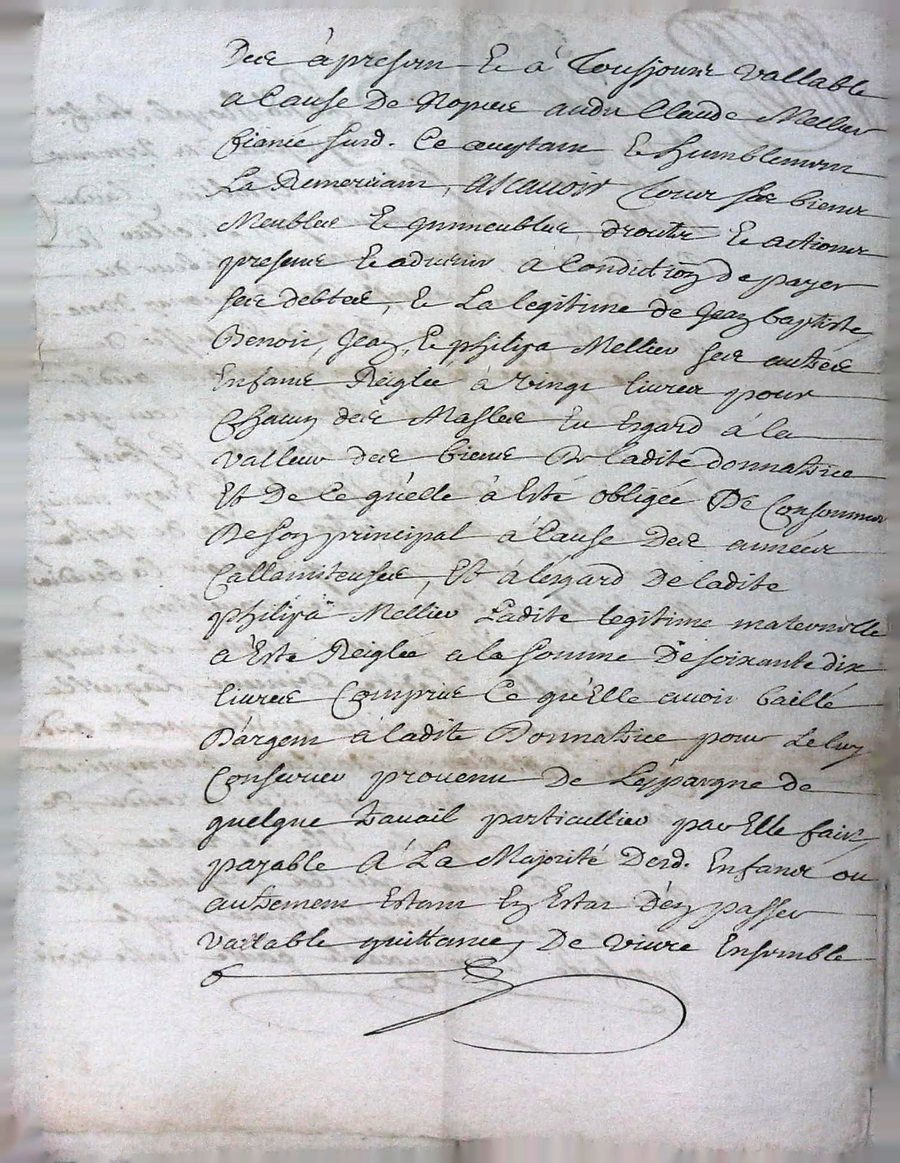 Des à presem Et à Tousjours vallable
a Cause De Nopces audit Claude Mellier
fiancé susd. Ce aceptam Et humblemem
La Remerciam, Ascauoir tous ses biens
Meubles Et immeubles, droits Et actions
presens Et aduenir à Condiction de payer
ses debtes, Et La legitime de Jean baptiste,
Benoit, Jean, Et philipa Mellier ses autres
Enfans Reiglée à vingt liures pour
Chacun des Masles Eu Esgard à la
valleur des biens De ladite donnatrice
Et De Ce qu'elle à Esté obligée De Consommer
De son principal à Cause Des années
Callamiteuses, Et à lesgard De ladite
philipa Mellier Ladite legitime maternelle
a Esté Reiglée a la somme De soixante dix
liures Compris Ce qu'Elle auoit baillé
D'argent à ladite Donnatrice pour Le luy
Conseruer prouenu De L'espargne de
quelque trauail particullier par Elle fait,
payable A La Majorité Desd. Enfans ou
autrement Estant En Estat d'En passer
vallable quittance, De viure Ensemble